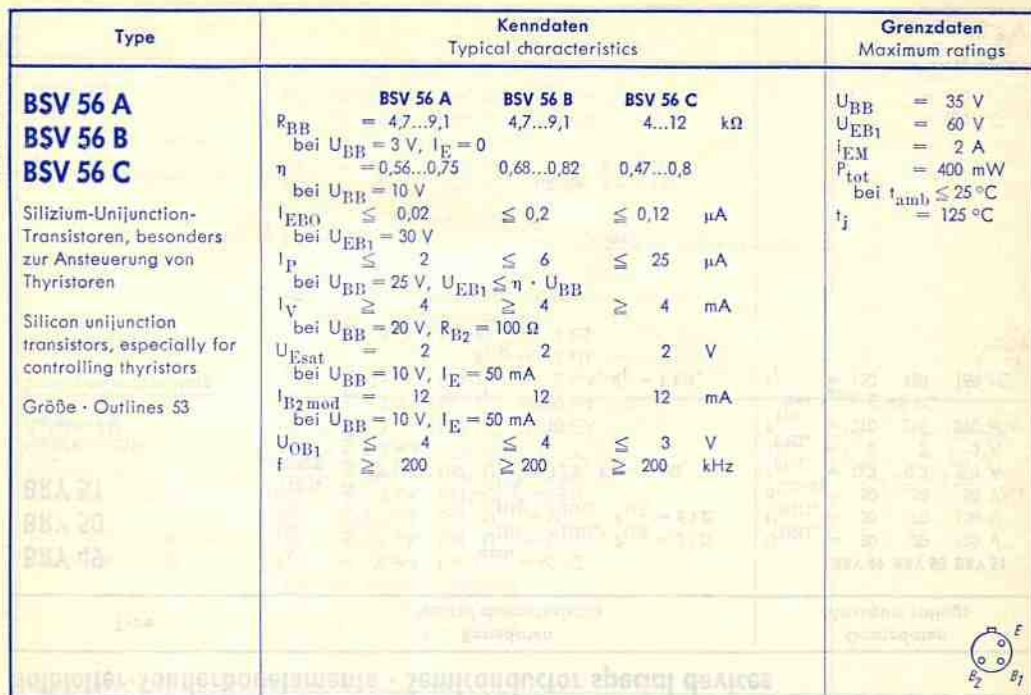 Type
Kenndaten
Typical characteristics
Grenzdaten
Maximum ratings
BSV 56 A
BSV 56 B
BSV 56 C
Silizium-Unijunction-
Transistoren, besonders
zur Ansteuerung von
Thyristoren
Silicon unijunction
transistors, especially for
controlling thyristors
Größe · Outlines 53
BSV 56 A BSV 56 B BSV 56 C
R_BB = 4,7...9,1 4,7...9,1 4...12 kΩ
bei U_BB = 3 V, I_E = 0
η = 0,56...0,75 0,68...0,82 0,47...0,8
bei U_BB = 10 V
I_EBO ≦ 0,02 ≦ 0,2 ≦ 0,12 μA
bei U_EB1 = 30 V
I_P ≦ 2 ≦ 6 ≦ 25 μA
bei U_BB = 25 V, U_EB1 ≦ η · U_BB
I_V ≧ 4 ≧ 4 ≧ 4 mA
bei U_BB = 20 V, R_B2 = 100 Ω
U_Esat = 2 2 2 V
bei U_BB = 10 V, I_E = 50 mA
I_B2 mod = 12 12 12 mA
bei U_BB = 10 V, I_E = 50 mA
U_OB1 ≦ 4 ≦ 4 ≦ 3 V
f ≧ 200 ≧ 200 ≧ 200 kHz
U_BB = 35 V
U_EB1 = 60 V
i_EM = 2 A
P_tot = 400 mW
bei t_amb ≦ 25 °C
t_j = 125 °C
E
B2 B1